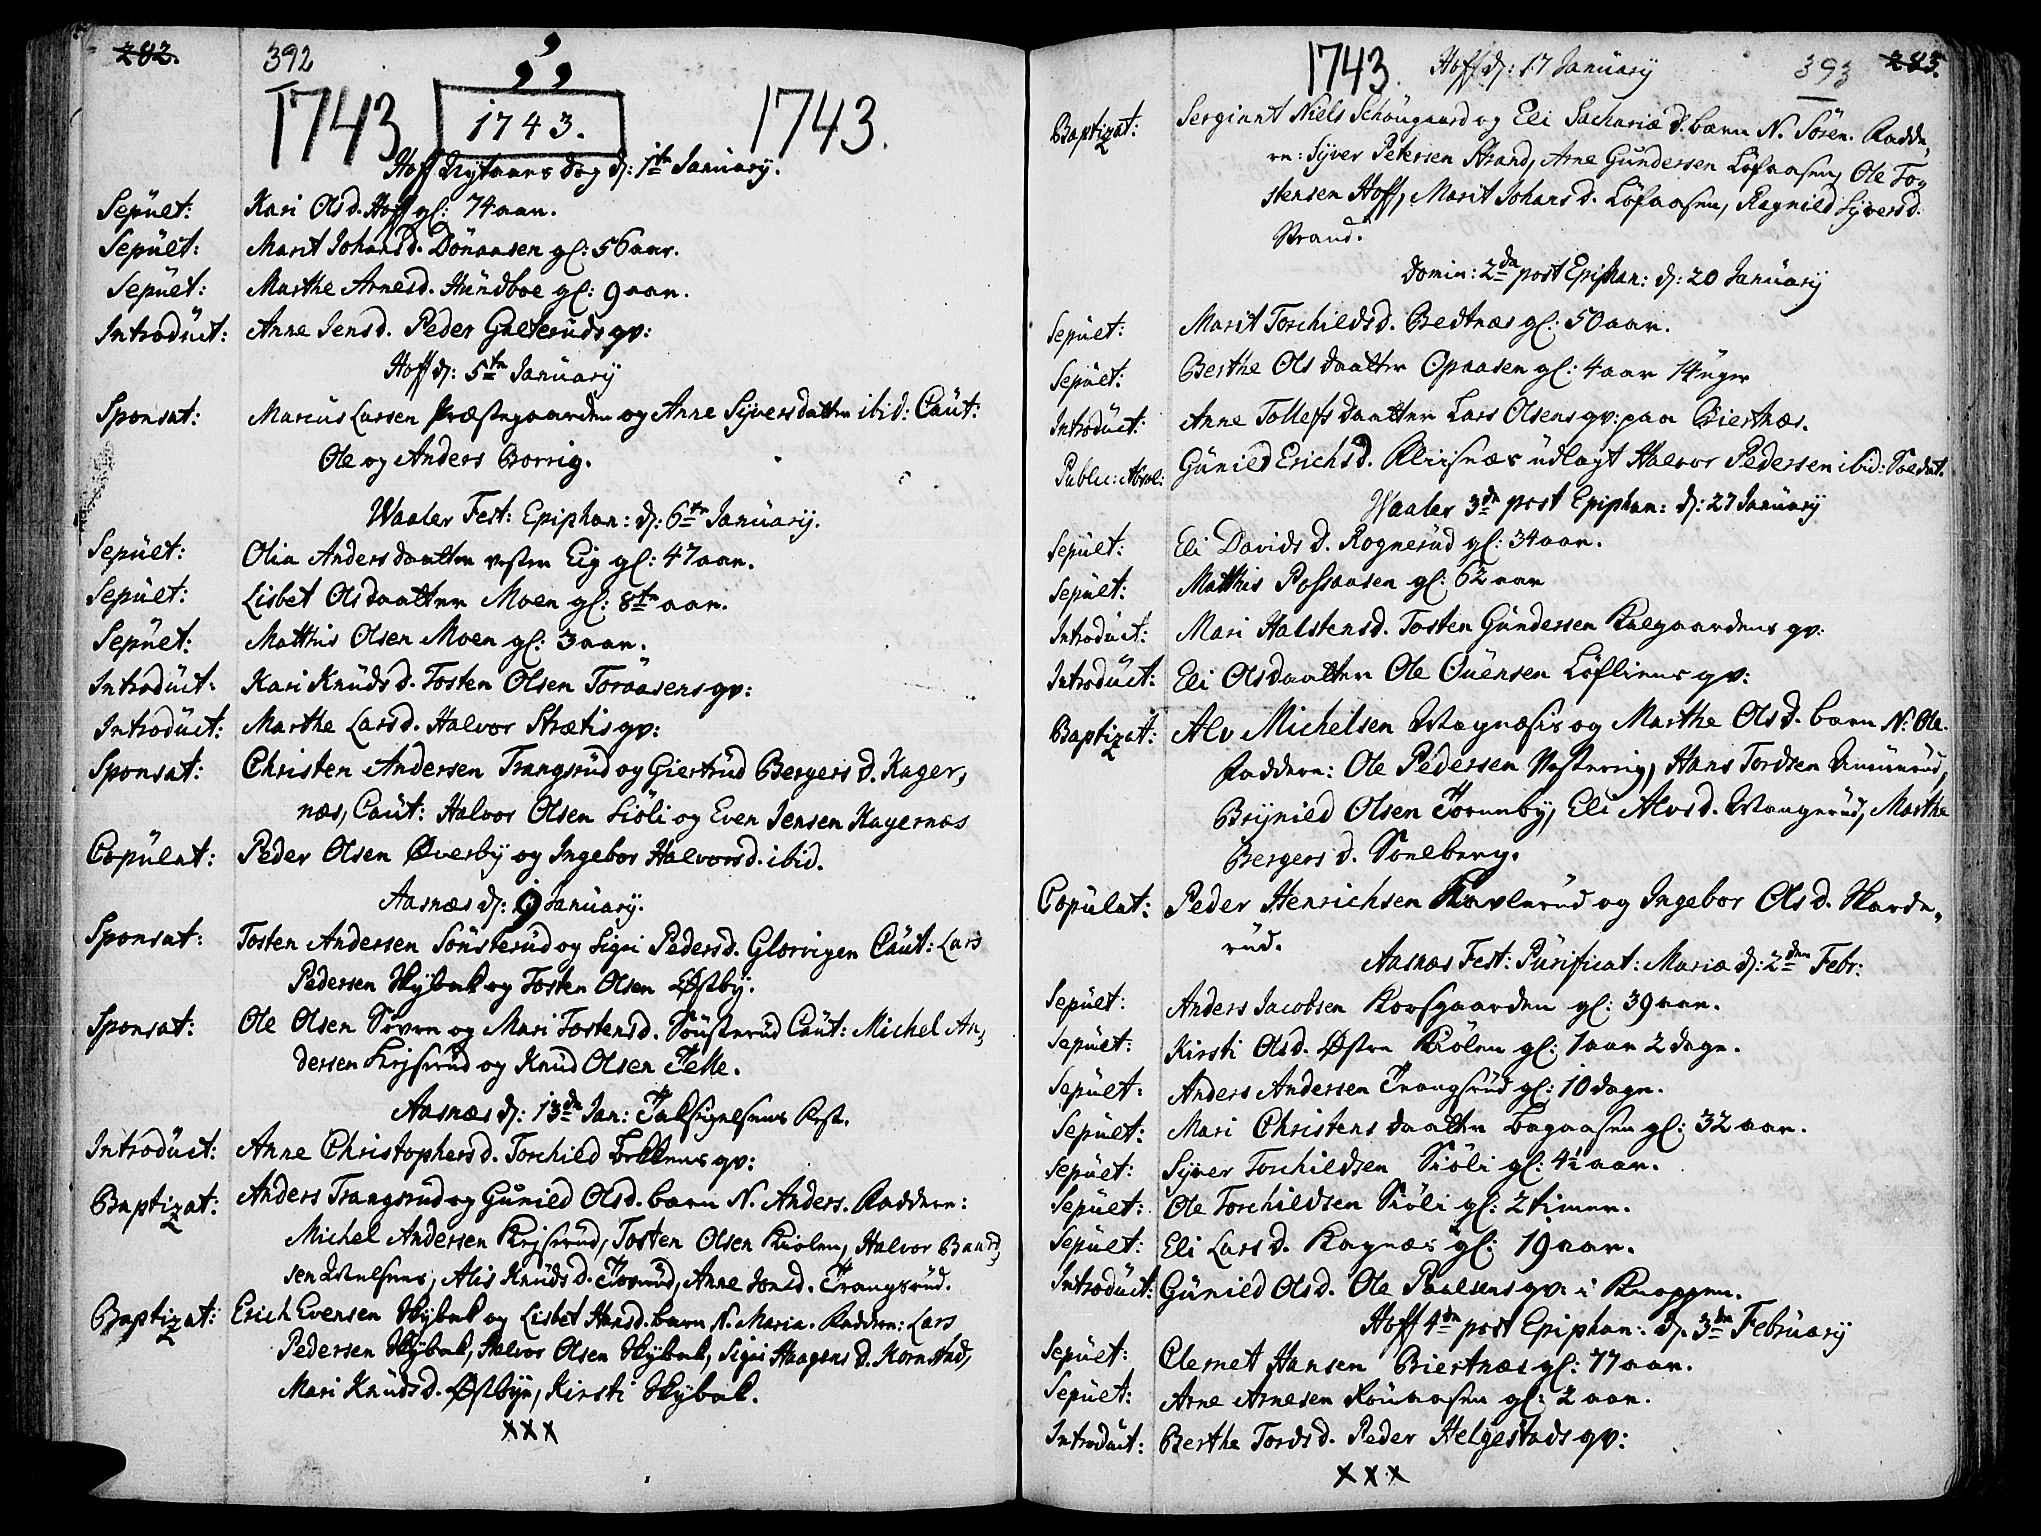 282.
392
1743
1743.
1743.
Hoff Nytaars Dag d: 1te January.
Sepult: Kari Olsd. Hoff gl: 74 aar.
Sepult: Marit Johansd. Dönaasen gl: 56 aar.
Sepult: Marthe Arnesd. Hundboe gl: 9 aar.
Introduct: Anne Jensd. Peder Galteruds gv:
Hoff d: 5te January
Sponsat: Marcus Larsen Præstegaarden og Anne Syversdatter ibid: Caut:
Ole og Anders Borrig.
Waaler Fest: Epiphan: d: 6te January.
Sepult: Olia Andersdaatter vester Eig gl: 47 aar.
Sepult: Lisbet Olsdaatter Moen gl: 8te aar.
Sepult: Matthis Olsen Moen gl: 3 aar.
Introduct: Kari Knudsd. Tosten Olsen Toraasens gv:
Introduct: Marthe Larsd. Halvor Strætis gv:
Sponsat: Christen Andersen Trangsrud og Giertrud Bergersd. Kager,
næs, Caut: Halvor Olsen Siöli og Even Jensen Kagernæs
Copulat: Peder Olsen Øverby og Ingebor Halvorsd. ibid.
Aasnæs d: 9 January.
Sponsat: Tosten Andersen Sönsterud og Sigri Pedersd. Glorvigen Caut: Lars
Pedersen Skybæk og Tosten Olsen Østby.
Sponsat: Ole Olsen Sören og Mari Tostensd. Sönsterud Caut: Michel An,
dersen og Knud Olsen Telle.
Aasnæs d: 13de Jan: Taksigelsens Fest.
Introduct: Anne Christophersd. Torchild gv:
Baptizat: Anders Trangsrud og Gunild Olsd. barn N. Anders. Faddere:
Michel Andersen Tosten Olsen Kiolen, Halvor Baard,
sen Alis Knudsd. Anne Jonsd. Trangsrud.
Baptizat: Erich Evensen Skybæk og Lisbet Hansd. barn N. Maria. Faddere: Lars
Pedersen Skybæk, Halvor Olsen Skybæk, Sigri Haagensd. Kornstad,
Mari Knudsd. Østbye, Kirsti Skybæk.
xxx
1743.
Hoff d: 17 January
393
283.
Baptizat: Sergiant Niels Schougaard og Eli Sachariæd. barn N. Sören. Fadde,
re: Syver Petersen Strand, Arne Gundersen Löfaasen, Ole To,
stensen Hoff, Marit Johansd. Löfaasen, Ragnild Syversd.
Strand.
Domin: 2da post Epiphan: d: 20 January
Sepult: Marit Torchildsd. gl: 50 aar.
Sepult: Berthe Olsdaatter Opaasen gl: 4 aar 14 uger
Introduct: Anne Tollefsdaatter Lars Olsens gv: paa Biertnæs.
Public: Absol: Gunild Erichsd. udlagt Halvor Pedersen ibid: Soldat.
Waaler 3da post Epiphan: d: 27 January
Sepult: Eli Davidsd. Rognerud gl: 34 aar.
Sepult: Matthis Possaasen gl: 62 aar
Introduct: Mari Halstensd. Tosten Gundersen gv:
Introduct: Eli Olsdaatter Ole Ouensen Löfliens gv:
Baptizat: Alv Michelsen og Marthe Olsd. barn N. Ole.
Faddere: Ole Pedersen Hans Tordsen
Brynild Olsen Torunby, Eli Alvsd. Wangerud, Marthe
Bergersd. Soneberg.
Copulat: Peder Henrichsen og Ingebor Olsd. Skarde,
rud.
Aasnæs Fest: Purificat: Mariæ d: 2den Febr:
Sepult: Anders Jacobsen Korsgaarden gl: 39 aar.
Sepult: Kirsti Olsd. Østre Kiölen gl: 1 aar 2 dage.
Sepult: Anders Andersen Trangsrud gl: 10 dage.
Sepult: Mari Christensdaatter gl: 32 aar.
Sepult: Syver Torchildsen Siöli gl: 4½ aar.
Sepult: Ole Torchildsen Siöli gl: 2 timer.
Sepult: Eli Larsd. Kagnæs gl: 19 aar.
Introduct: Gunild Olsd. Ole Paulsens gv: i Knappen.
Hoff 4de post Epiphan: d: 3de February
Sepult: Clemet Hansen Biertnæs gl: 77 aar.
Sepult: Arne Arnesen gl: 2 aar.
Introduct: Berthe Tordsd. Peder Helgestads gv:
xxx